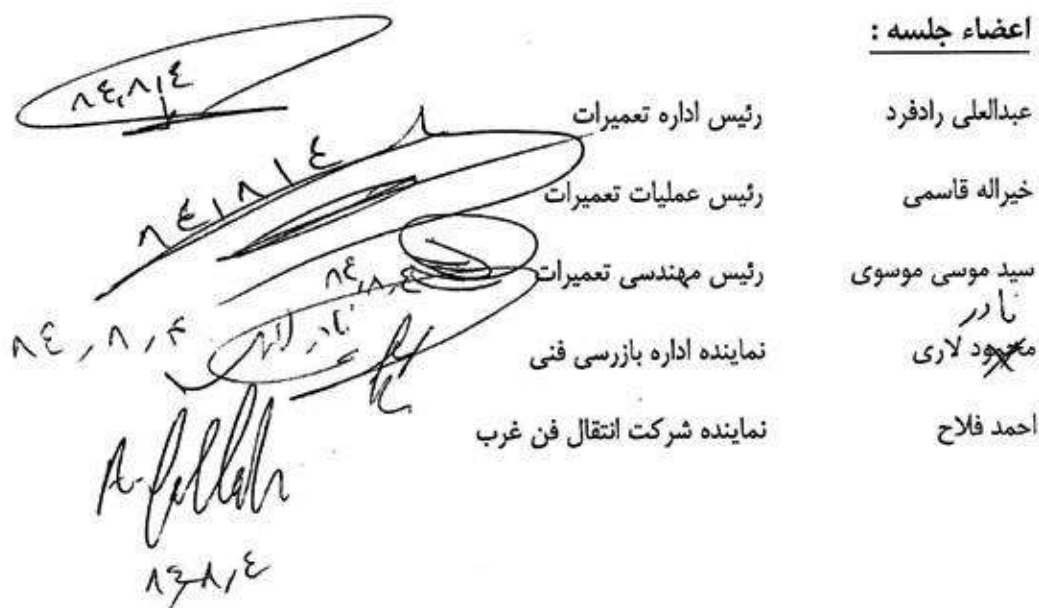 اعضاء جلسه :
عبدالعلی رادفرد رئیس اداره تعمیرات ٨٤,٨,٤
خیراله قاسمی رئیس عملیات تعمیرات ٨٤,٨,٤
سید موسی موسوی رئیس مهندسی تعمیرات ٨٤,٨,٤
نادر
محمود لاری نماینده اداره بازرسی فنی ٨٤,٨,۴
احمد فلاح نماینده شرکت انتقال فن غرب
A.fallah
٨٤,٨,٤